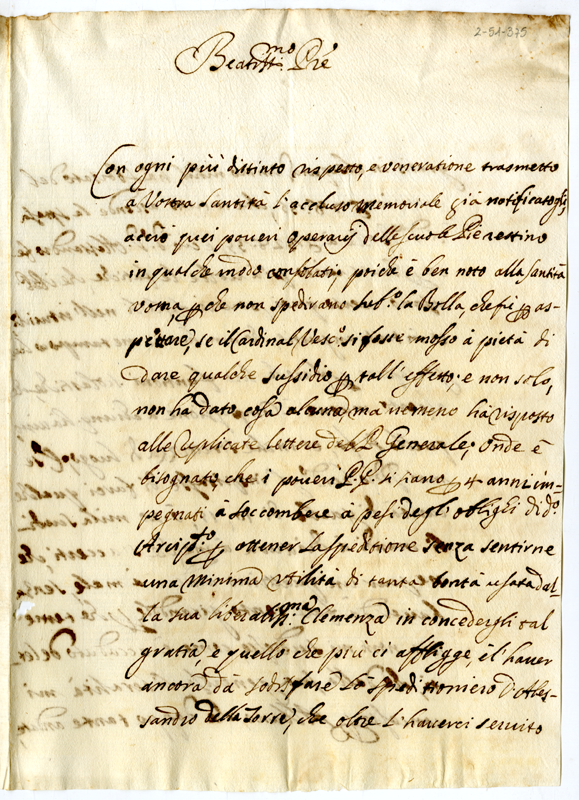 2-51-375
Beatiss.mo Pre
Con ogni più distinto rispetto, e veneratione trasmetto
à Vostra Santità l'accluso memoriale già notificatogli,
acciò quei poveri operarij delle scuole Pie restino
in qualche modo consolati, poiche è ben noto alla Santità
vostra, che non spedirono sub.o la Bolla, che fù as-
pettare, se il Cardinal Vesc.o si fosse mosso à pietà di
dare qualche sussidio p tall'effetto; e non solo,
non ha dato cosa alcuna, mà nemeno hà risposto
alle replicate lettere del P. Generale; onde è
bisognato, che i poveri P.P. si siano p 4 anni im-
pegnati à soccombere a pesi degl'oblighi di d.o
Arcip.to p ottener la speditione senza sentirne
una minima utilità di tanta bontà usata dal-
la sua liberaliss.ma Clemenza in concedergli tal
gratia, e quello che più ci affligge, è l'haver
ancora dà sodisfare lo speditioniero d'Ales-
sandro della Torre, che oltre l'haverci servito